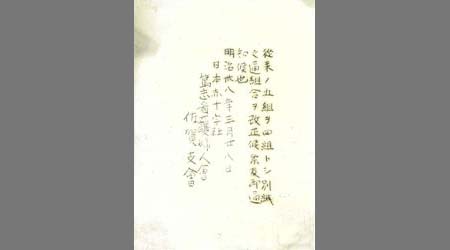 従来ノ五組ヲ四組トシ別紙
之通組合ヲ改正候条及御通
知候也
明治卅八年三月廿八日
日本赤十字社
篤志看護婦人會
佐賀支會